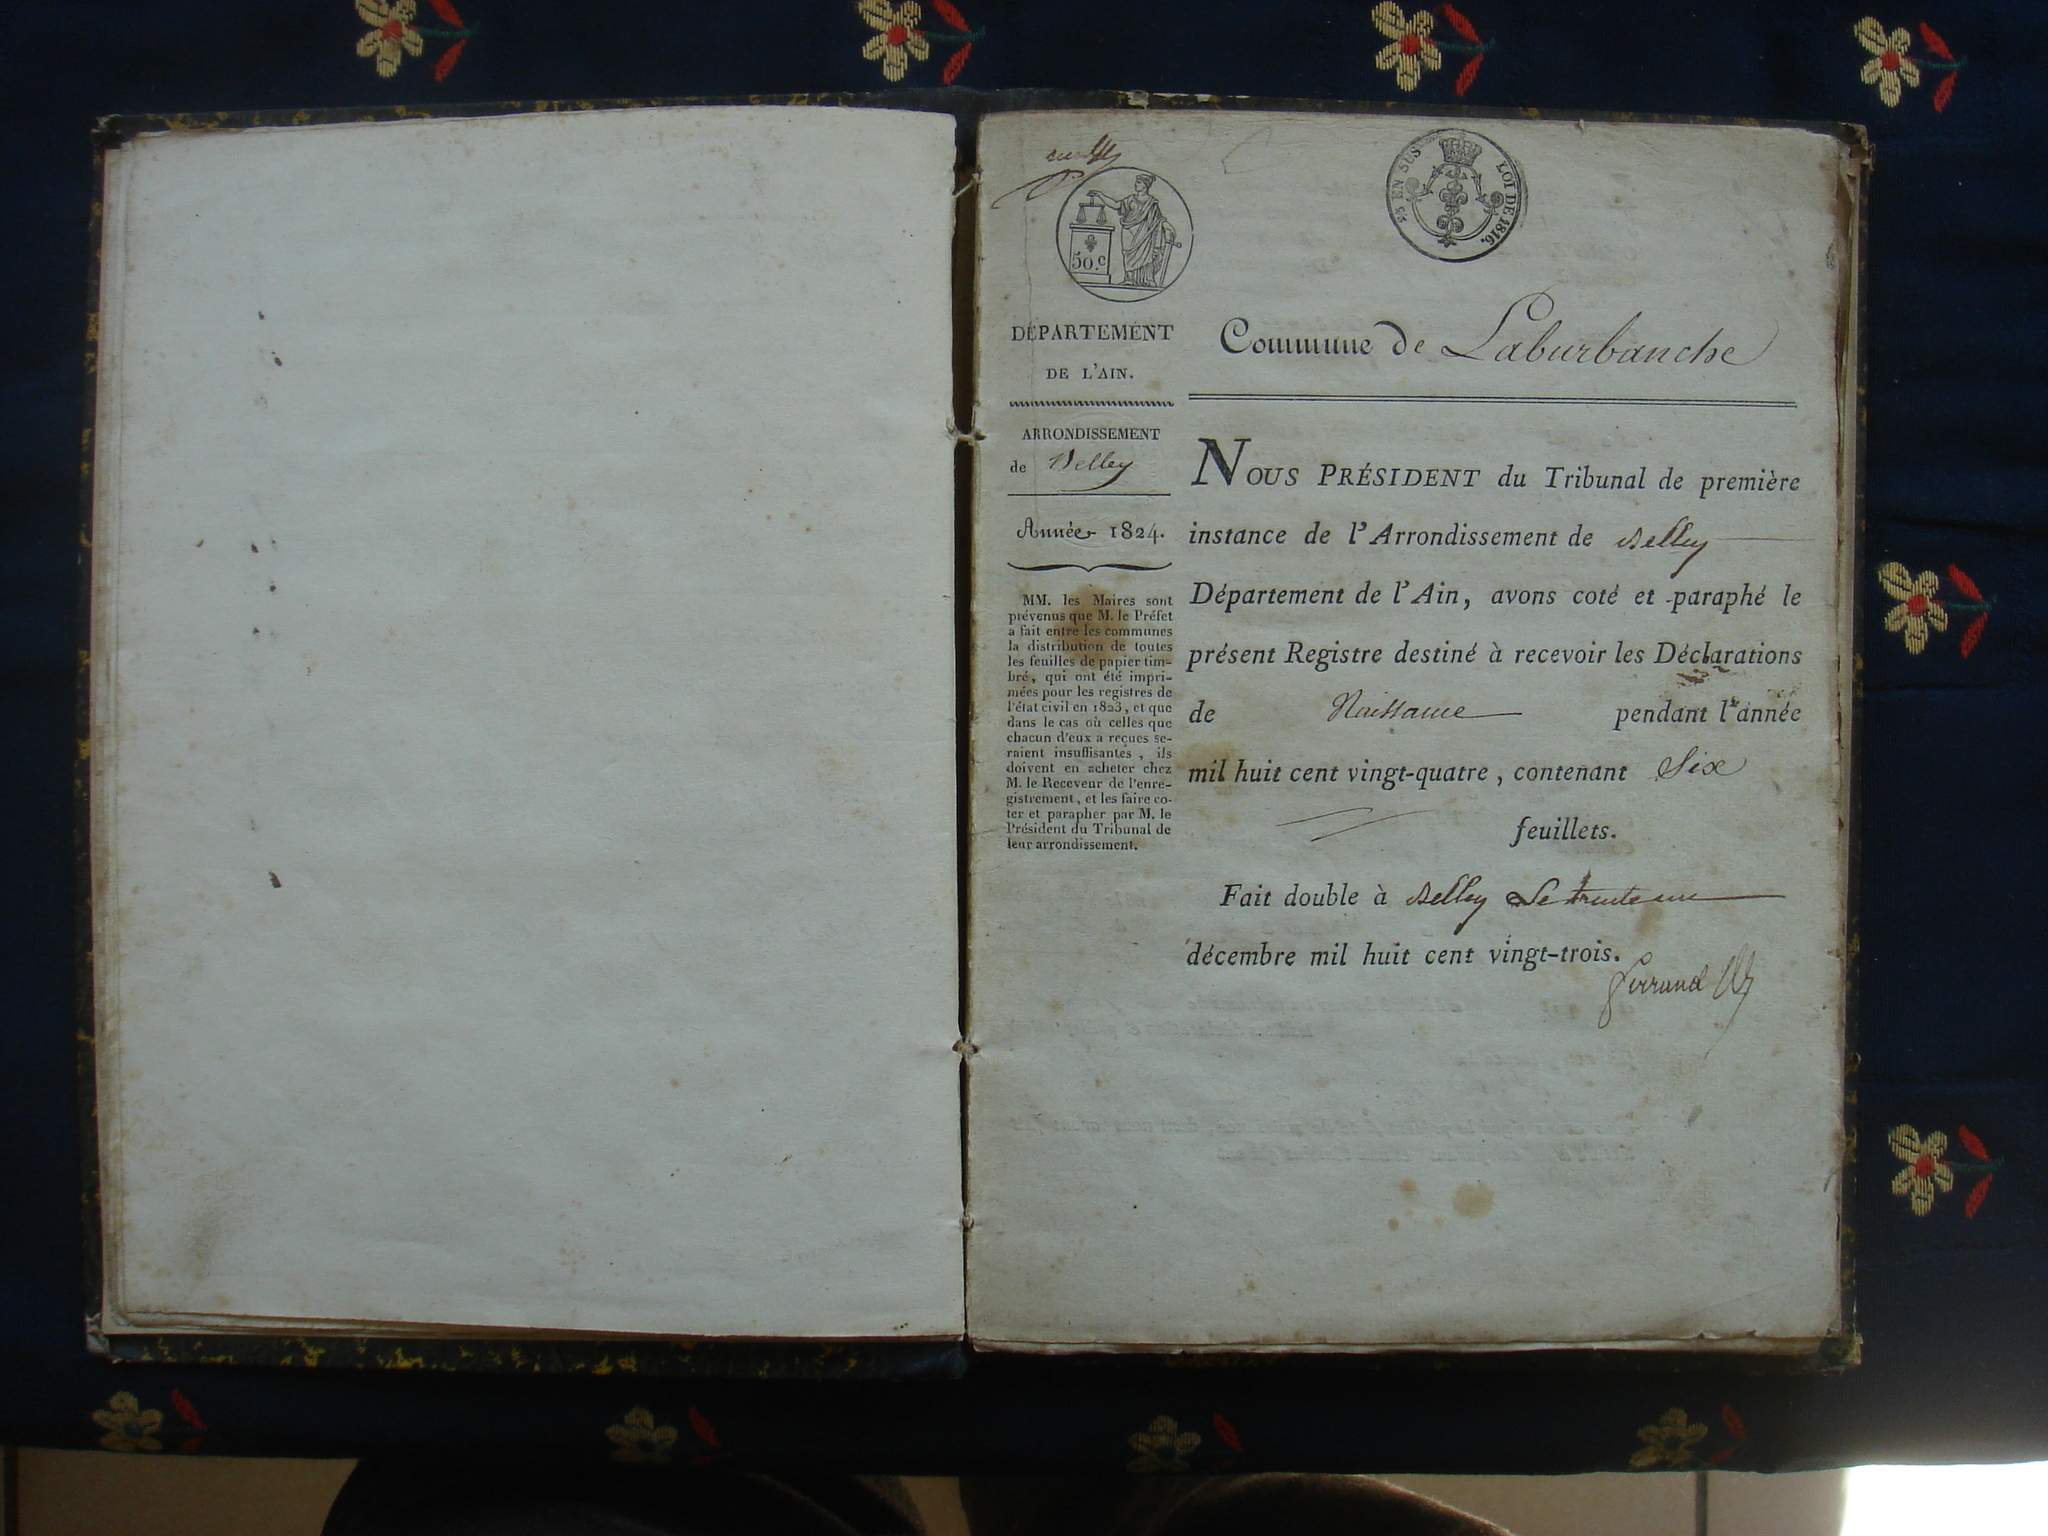 50.c
25 EN SUS LOI DE 1816.
DÉPARTEMENT
DE L'AIN.
ARRONDISSEMENT
de Belley
Année 1824.
MM. les Maires sont
prévenus que M. le Préfet
a fait entre les communes
la distribution de toutes
les feuilles de papier tim-
bré, qui ont été impri-
mées pour les registres de
l'état civil en 1823, et que
dans le cas où celles que
chacun d'eux a reçues se-
raient insuffisantes, ils
doivent en acheter chez
M. le Receveur de l'enre-
gistrement, et les faire co-
ter et parapher par M. le
Président du Tribunal de
leur arrondissement.
Commune de Laburbanche
NOUS PRÉSIDENT du Tribunal de première
instance de l'Arrondissement de Belley
Département de l'Ain, avons coté et paraphé le
présent Registre destiné à recevoir les Déclarations
de Naissance pendant l'année
mil huit cent vingt-quatre, contenant Six
feuillets.
Fait double à Belley Le trente un
décembre mil huit cent vingt-trois.